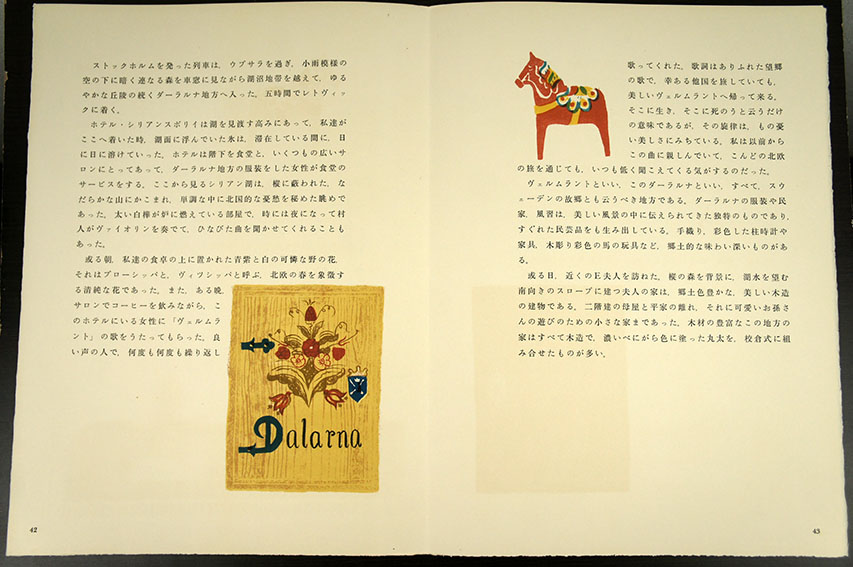 ストックホルムを発った列車は、ウプサラを過ぎ、小雨模様の
空の下に暗く連なる森を車窓に見ながら湖沼地帯を越えて、ゆる
やかな丘陵の続くダーラルナ地方へ入った。五時間でレトヴィッ
クに着く。
ホテル・シリアンスボリイは湖を見渡す高みにあって、私達が
ここへ着いた時、湖面に浮んでいた氷は、滞在している間に、日
に日に溶けていった。ホテルは階下を食堂と、いくつもの広いサ
ロンにとってあって、ダーラルナ地方の服装をした女性が食堂の
サービスをする。ここから見るシリアン湖は、樅に蔽われた、な
だらかな山にかこまれ、単調な中に北国的な憂愁を秘めた眺めで
あった。太い白樺が炉に燃えている部屋で、時には夜になって村
人がヴァイオリンを奏でて、ひなびた曲を聞かせてくれることも
あった。
或る朝、私達の食卓の上に置かれた青紫と白の可憐な野の花、
それはブローシッパと、ヴィフシッパと呼ぶ、北欧の春を象徴す
る清純な花であった。また、ある晩、
サロンでコーヒーを飲みながら、こ
のホテルにいる女性に「ヴェルムラ
ント」の歌をうたってもらった。良
い声の人で、何度も何度も繰り返し
Dalarna
42
歌ってくれた。歌詞はありふれた望郷
の歌で、幸ある他国を旅していても、
美しいヴェルムラントへ帰って来る。
そこに生き、そこに死のうと云うだけ
の意味であるが、その旋律は、もの憂
い美しさにみちている。私は以前から
この曲に親しんでいて、こんどの北欧
の旅を通じても、いつも低く聞こえてくる気がするのだった。
ヴェルムラントといい、このダーラルナといい、すべて、スウ
ェーデンの故郷とも云うべき地方である。ダーラルナの服装や民
家、風習は、美しい風景の中に伝えられてきた独特のものであり、
すぐれた民芸品をも生み出している。手織り、彩色した柱時計や
家具、木彫り彩色の馬の玩具など、郷土的な味わい深いものがあ
る。
或る日、近くのE夫人を訪ねた。樅の森を背景に、湖水を望む
南向きのスロープに建つ夫人の家は、郷土色豊かな、美しい木造
の建物である。二階建の母屋と平家の離れ、それに可愛いお孫さ
んの遊びのための小さな家まであった。木材の豊富なこの地方の
家はすべて木造で、濃いべにがら色に塗った丸太を、校倉式に組
み合せたものが多い。
43